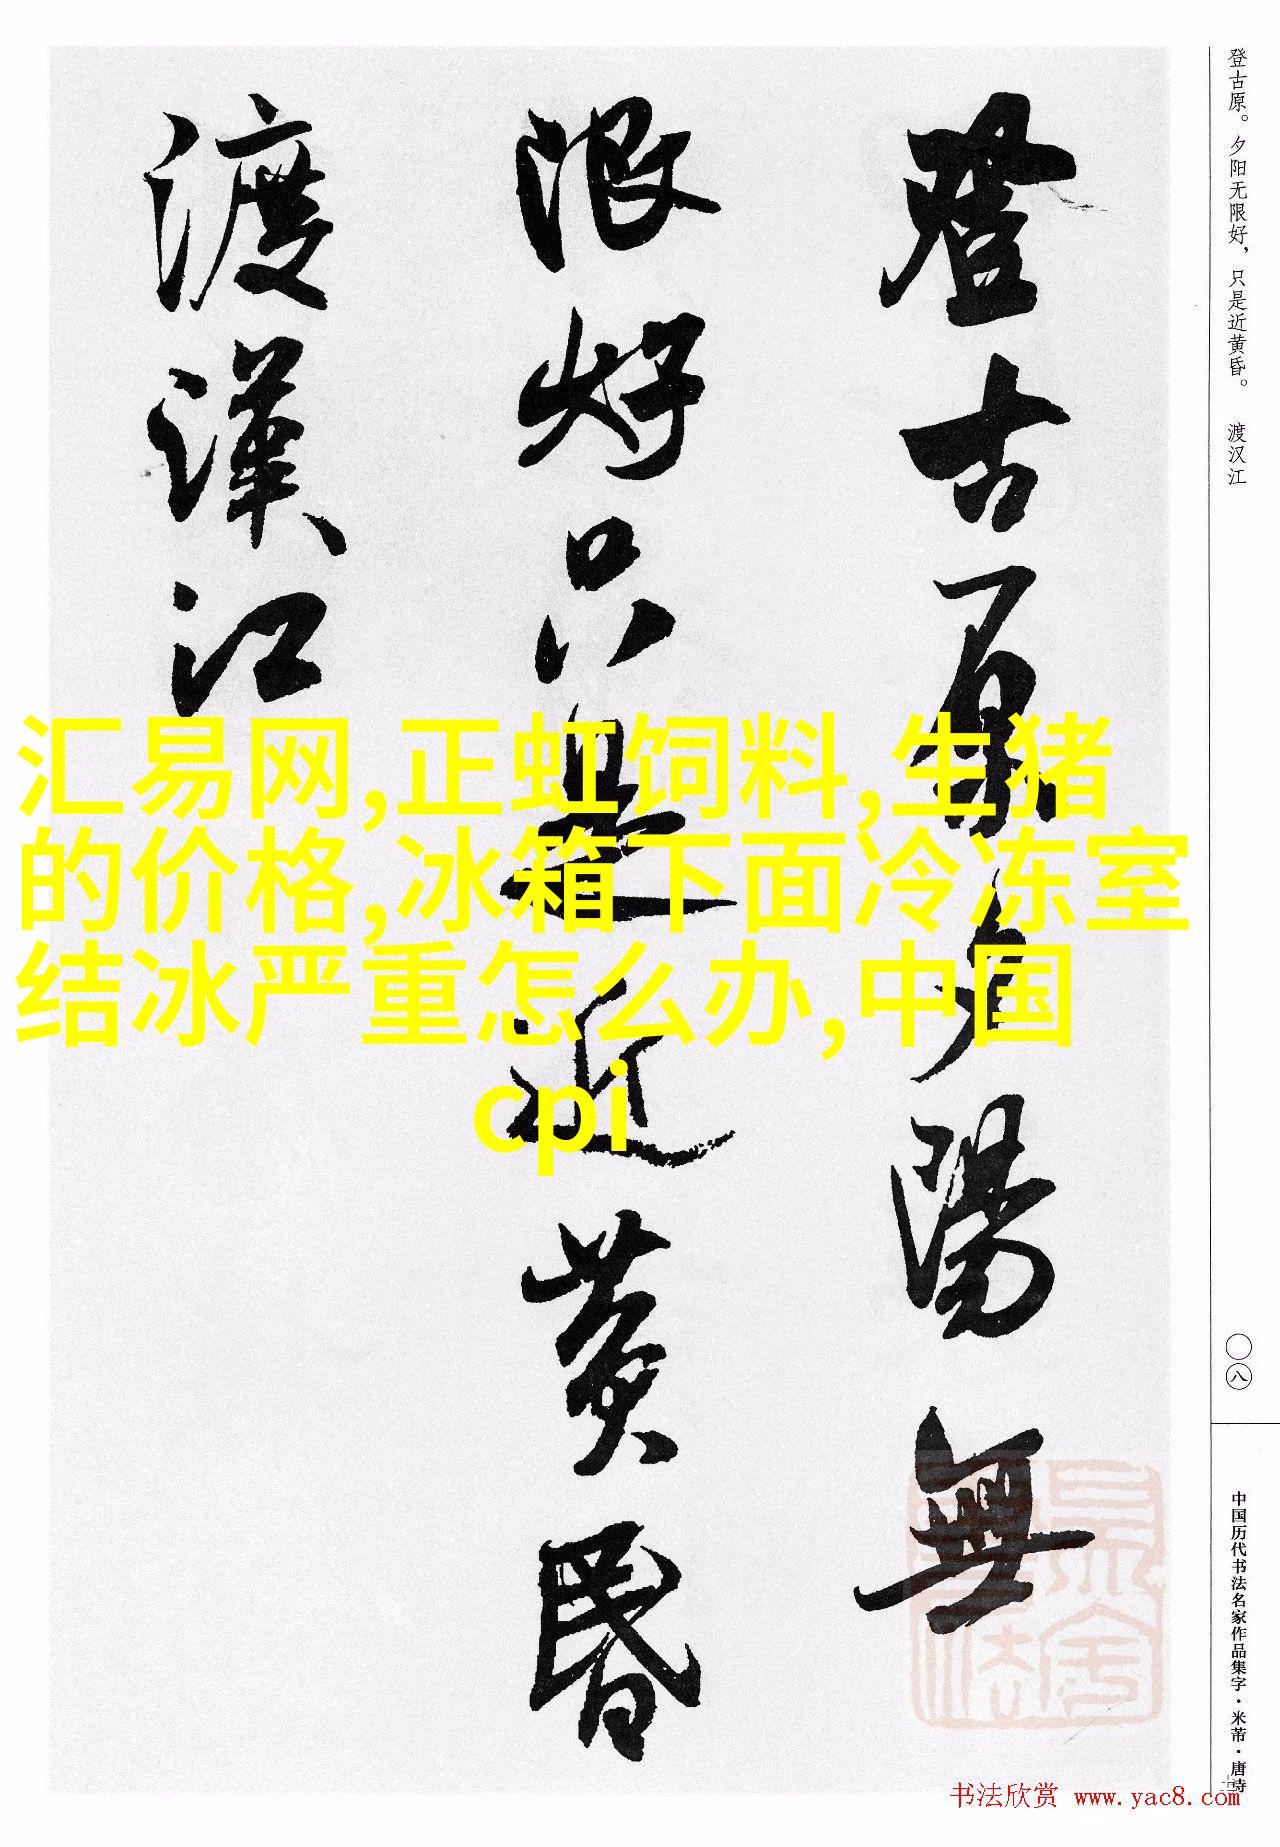 登古原夕陽無
限好只是近黄昏
渡漢江
登古原。夕阳无限好，只是近黄昏。 渡汉江
汇易网,正虹饲料,生猪
的价格,冰箱下面冷冻室
结冰严重怎么办,中国
cpi
〇八
中国历代书法名家作品集字·米芾·唐诗
书法欣赏 www.yac8.com